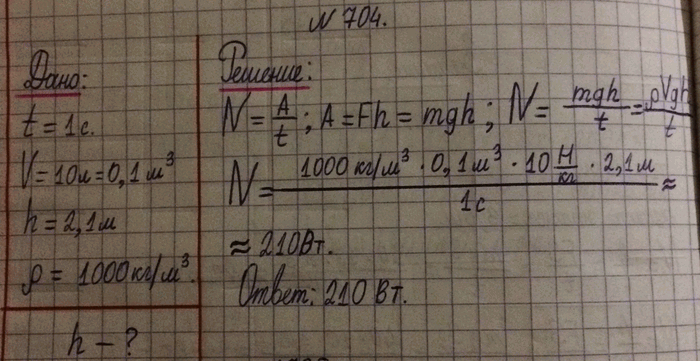 N 704.
Дано:
t = 1с.
V = 10л = 0,1 м³
h = 2,1м
ρ = 1000кг/м³.
h - ?
Решение:
N = A/t ; A = Fh = mgh ; N = mgh/t = ρVgh/t
N = 1000 кг/м³ · 0,1м³ · 10 Н/кг · 2,1м / 1с ≈
≈ 210Вт.
Ответ: 210 Вт.